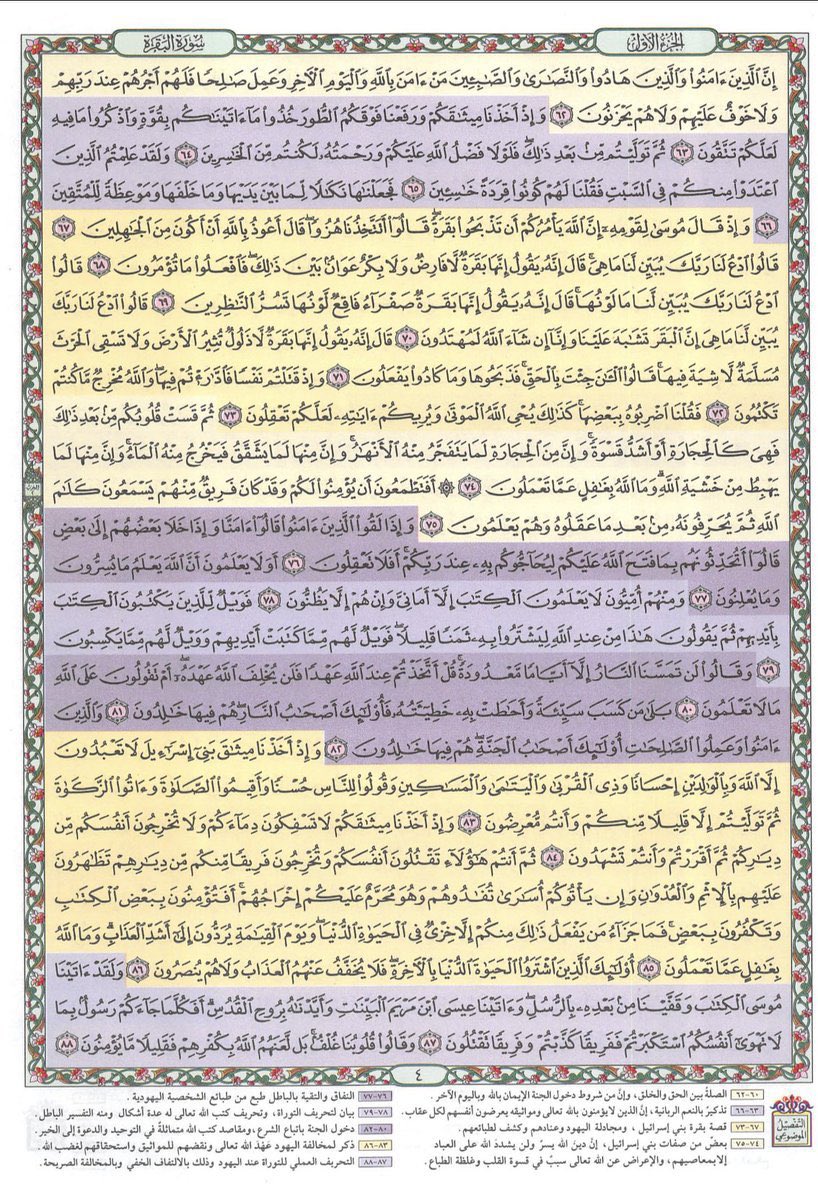 الجزء الأول
سورة البقرة
إِنَّ ٱلَّذِينَ ءَامَنُوا۟ وَٱلَّذِينَ هَادُوا۟ وَٱلنَّصَٰرَىٰ وَٱلصَّٰبِـِٔينَ مَنْ ءَامَنَ بِٱللَّهِ وَٱلْيَوْمِ ٱلْءَاخِرِ وَعَمِلَ صَٰلِحًا فَلَهُمْ أَجْرُهُمْ عِندَ رَبِّهِمْ
وَلَا خَوْفٌ عَلَيْهِمْ وَلَا هُمْ يَحْزَنُونَ ٦٢ وَإِذْ أَخَذْنَا مِيثَٰقَكُمْ وَرَفَعْنَا فَوْقَكُمُ ٱلطُّورَ خُذُوا۟ مَآ ءَاتَيْنَٰكُم بِقُوَّةٍ وَٱذْكُرُوا۟ مَا فِيهِ
لَعَلَّكُمْ تَتَّقُونَ ٦٣ ثُمَّ تَوَلَّيْتُم مِّنۢ بَعْدِ ذَٰلِكَ ۖ فَلَوْلَا فَضْلُ ٱللَّهِ عَلَيْكُمْ وَرَحْمَتُهُۥ لَكُنتُم مِّنَ ٱلْخَٰسِرِينَ ٦٤ وَلَقَدْ عَلِمْتُمُ ٱلَّذِينَ
ٱعْتَدَوْا۟ مِنكُمْ فِى ٱلسَّبْتِ فَقُلْنَا لَهُمْ كُونُوا۟ قِرَدَةً خَٰسِـِٔينَ ٦٥ فَجَعَلْنَٰهَا نَكَٰلًا لِّمَا بَيْنَ يَدَيْهَا وَمَا خَلْفَهَا وَمَوْعِظَةً لِّلْمُتَّقِينَ
٦٦ وَإِذْ قَالَ مُوسَىٰ لِقَوْمِهِۦٓ إِنَّ ٱللَّهَ يَأْمُرُكُمْ أَن تَذْبَحُوا۟ بَقَرَةً ۖ قَالُوٓا۟ أَتَتَّخِذُنَا هُزُوًا ۖ قَالَ أَعُوذُ بِٱللَّهِ أَنْ أَكُونَ مِنَ ٱلْجَٰهِلِينَ ٦٧
قَالُوا۟ ٱدْعُ لَنَا رَبَّكَ يُبَيِّن لَّنَا مَا هِىَ ۚ قَالَ إِنَّهُۥ يَقُولُ إِنَّهَا بَقَرَةٌ لَّا فَارِضٌ وَلَا بِكْرٌ عَوَانٌۢ بَيْنَ ذَٰلِكَ ۖ فَٱفْعَلُوا۟ مَا تُؤْمَرُونَ ٦٨ قَالُوا۟
ٱدْعُ لَنَا رَبَّكَ يُبَيِّن لَّنَا مَا لَوْنُهَا ۚ قَالَ إِنَّهُۥ يَقُولُ إِنَّهَا بَقَرَةٌ صَفْرَآءُ فَاقِعٌ لَّوْنُهَا تَسُرُّ ٱلنَّٰظِرِينَ ٦٩ قَالُوا۟ ٱدْعُ لَنَا رَبَّكَ
يُبَيِّن لَّنَا مَا هِىَ إِنَّ ٱلْبَقَرَ تَشَٰبَهَ عَلَيْنَا وَإِنَّآ إِن شَآءَ ٱللَّهُ لَمُهْتَدُونَ ٧٠ قَالَ إِنَّهُۥ يَقُولُ إِنَّهَا بَقَرَةٌ لَّا ذَلُولٌ تُثِيرُ ٱلْأَرْضَ وَلَا تَسْقِى ٱلْحَرْثَ
مُسَلَّمَةٌ لَّا شِيَةَ فِيهَا ۚ قَالُوا۟ ٱلْـَٰٔنَ جِئْتَ بِٱلْحَقِّ ۚ فَذَبَحُوهَا وَمَا كَادُوا۟ يَفْعَلُونَ ٧١ وَإِذْ قَتَلْتُمْ نَفْسًا فَٱدَّٰرَْٰٔتُمْ فِيهَا ۖ وَٱللَّهُ مُخْرِجٌ مَّا كُنتُمْ
تَكْتُمُونَ ٧٢ فَقُلْنَا ٱضْرِبُوهُ بِبَعْضِهَا ۚ كَذَٰلِكَ يُحْىِ ٱللَّهُ ٱلْمَوْتَىٰ وَيُرِيكُمْ ءَايَٰتِهِۦ لَعَلَّكُمْ تَعْقِلُونَ ٧٣ ثُمَّ قَسَتْ قُلُوبُكُم مِّنۢ بَعْدِ ذَٰلِكَ
فَهِىَ كَٱلْحِجَارَةِ أَوْ أَشَدُّ قَسْوَةً ۚ وَإِنَّ مِنَ ٱلْحِجَارَةِ لَمَا يَتَفَجَّرُ مِنْهُ ٱلْأَنْهَٰرُ ۚ وَإِنَّ مِنْهَا لَمَا يَشَّقَّقُ فَيَخْرُجُ مِنْهُ ٱلْمَآءُ ۚ وَإِنَّ مِنْهَا لَمَا
يَهْبِطُ مِنْ خَشْيَةِ ٱللَّهِ ۗ وَمَا ٱللَّهُ بِغَٰفِلٍ عَمَّا تَعْمَلُونَ ٧٤ ۞ أَفَتَطْمَعُونَ أَن يُؤْمِنُوا۟ لَكُمْ وَقَدْ كَانَ فَرِيقٌ مِّنْهُمْ يَسْمَعُونَ كَلَٰمَ
ٱللَّهِ ثُمَّ يُحَرِّفُونَهُۥ مِنۢ بَعْدِ مَا عَقَلُوهُ وَهُمْ يَعْلَمُونَ ٧٥ وَإِذَا لَقُوا۟ ٱلَّذِينَ ءَامَنُوا۟ قَالُوٓا۟ ءَامَنَّا وَإِذَا خَلَا بَعْضُهُمْ إِلَىٰ بَعْضٍ
قَالُوٓا۟ أَتُحَدِّثُونَهُم بِمَا فَتَحَ ٱللَّهُ عَلَيْكُمْ لِيُحَآجُّوكُم بِهِۦ عِندَ رَبِّكُمْ ۚ أَفَلَا تَعْقِلُونَ ٧٦ أَوَلَا يَعْلَمُونَ أَنَّ ٱللَّهَ يَعْلَمُ مَا يُسِرُّونَ
وَمَا يُعْلِنُونَ ٧٧ وَمِنْهُمْ أُمِّيُّونَ لَا يَعْلَمُونَ ٱلْكِتَٰبَ إِلَّآ أَمَانِىَّ وَإِنْ هُمْ إِلَّا يَظُنُّونَ ٧٨ فَوَيْلٌ لِّلَّذِينَ يَكْتُبُونَ ٱلْكِتَٰبَ
بِأَيْدِيهِمْ ثُمَّ يَقُولُونَ هَٰذَا مِنْ عِندِ ٱللَّهِ لِيَشْتَرُوا۟ بِهِۦ ثَمَنًا قَلِيلًا ۖ فَوَيْلٌ لَّهُم مِّمَّا كَتَبَتْ أَيْدِيهِمْ وَوَيْلٌ لَّهُم مِّمَّا يَكْسِبُونَ
٧٩ وَقَالُوا۟ لَن تَمَسَّنَا ٱلنَّارُ إِلَّآ أَيَّامًا مَّعْدُودَةً ۚ قُلْ أَتَّخَذْتُمْ عِندَ ٱللَّهِ عَهْدًا فَلَن يُخْلِفَ ٱللَّهُ عَهْدَهُۥٓ ۖ أَمْ تَقُولُونَ عَلَى ٱللَّهِ
مَا لَا تَعْلَمُونَ ٨٠ بَلَىٰ مَن كَسَبَ سَيِّئَةً وَأَحَٰطَتْ بِهِۦ خَطِيٓـَٔتُهُۥ فَأُو۟لَٰٓئِكَ أَصْحَٰبُ ٱلنَّارِ ۖ هُمْ فِيهَا خَٰلِدُونَ ٨١ وَٱلَّذِينَ
ءَامَنُوا۟ وَعَمِلُوا۟ ٱلصَّٰلِحَٰتِ أُو۟لَٰٓئِكَ أَصْحَٰبُ ٱلْجَنَّةِ ۖ هُمْ فِيهَا خَٰلِدُونَ ٨٢ وَإِذْ أَخَذْنَا مِيثَٰقَ بَنِىٓ إِسْرَٰٓءِيلَ لَا تَعْبُدُونَ
إِلَّا ٱللَّهَ وَبِٱلْوَٰلِدَيْنِ إِحْسَانًا وَذِى ٱلْقُرْبَىٰ وَٱلْيَتَٰمَىٰ وَٱلْمَسَٰكِينِ وَقُولُوا۟ لِلنَّاسِ حُسْنًا وَأَقِيمُوا۟ ٱلصَّلَوٰةَ وَءَاتُوا۟ ٱلزَّكَوٰةَ
ثُمَّ تَوَلَّيْتُمْ إِلَّا قَلِيلًا مِّنكُمْ وَأَنتُم مُّعْرِضُونَ ٨٣ وَإِذْ أَخَذْنَا مِيثَٰقَكُمْ لَا تَسْفِكُونَ دِمَآءَكُمْ وَلَا تُخْرِجُونَ أَنفُسَكُم مِّن
دِيَٰرِكُمْ ثُمَّ أَقْرَرْتُمْ وَأَنتُمْ تَشْهَدُونَ ٨٤ ثُمَّ أَنتُمْ هَٰٓؤُلَآءِ تَقْتُلُونَ أَنفُسَكُمْ وَتُخْرِجُونَ فَرِيقًا مِّنكُم مِّن دِيَٰرِهِمْ تَظَٰهَرُونَ
عَلَيْهِم بِٱلْإِثْمِ وَٱلْعُدْوَٰنِ وَإِن يَأْتُوكُمْ أُسَٰرَىٰ تُفَٰدُوهُمْ وَهُوَ مُحَرَّمٌ عَلَيْكُمْ إِخْرَاجُهُمْ ۚ أَفَتُؤْمِنُونَ بِبَعْضِ ٱلْكِتَٰبِ
وَتَكْفُرُونَ بِبَعْضٍ ۚ فَمَا جَزَآءُ مَن يَفْعَلُ ذَٰلِكَ مِنكُمْ إِلَّا خِزْىٌ فِى ٱلْحَيَوٰةِ ٱلدُّنْيَا ۖ وَيَوْمَ ٱلْقِيَٰمَةِ يُرَدُّونَ إِلَىٰٓ أَشَدِّ ٱلْعَذَابِ ۗ وَمَا ٱللَّهُ
بِغَٰفِلٍ عَمَّا تَعْمَلُونَ ٨٥ أُو۟لَٰٓئِكَ ٱلَّذِينَ ٱشْتَرَوُا۟ ٱلْحَيَوٰةَ ٱلدُّنْيَا بِٱلْءَاخِرَةِ ۖ فَلَا يُخَفَّفُ عَنْهُمُ ٱلْعَذَابُ وَلَا هُمْ يُنصَرُونَ ٨٦ وَلَقَدْ ءَاتَيْنَا
مُوسَى ٱلْكِتَٰبَ وَقَفَّيْنَا مِنۢ بَعْدِهِۦ بِٱلرُّسُلِ ۖ وَءَاتَيْنَا عِيسَى ٱبْنَ مَرْيَمَ ٱلْبَيِّنَٰتِ وَأَيَّدْنَٰهُ بِرُوحِ ٱلْقُدُسِ ۗ أَفَكُلَّمَا جَآءَكُمْ رَسُولٌۢ بِمَا
لَا تَهْوَىٰٓ أَنفُسُكُمُ ٱسْتَكْبَرْتُمْ فَفَرِيقًا كَذَّبْتُمْ وَفَرِيقًا تَقْتُلُونَ ٨٧ وَقَالُوا۟ قُلُوبُنَا غُلْفٌۢ ۚ بَل لَّعَنَهُمُ ٱللَّهُ بِكُفْرِهِمْ فَقَلِيلًا مَّا يُؤْمِنُونَ ٨٨
٤
التفصيل الموضوعي
٦٠-٦٢ الصلة بين الحق والخلق، وإنّ من شروط دخول الجنة الإيمان بالله وباليوم الآخر .
٦٣-٦٦ تذكيرٌ بالنعم الربانية، إنّ الذين لا يؤمنون بالله تعالى ومواثيقه يعرضون أنفسهم لكل عقاب.
٦٧-٧٣ قصة بقرة بني إسرائيل ، ومجادلة اليهود وعنادهم وكشف لطبائعهم.
٧٤-٧٥ بعضٌ من صفات بني إسرائيل، إنّ دينَ الله يسرٌ ولن يشددَ الله على العباد
إلا بمعاصيهم، والإعراض عن الله تعالى سببٌ في قسوة القلب وغلظة الطباع.
٧٦-٧٧ النفاق والتقية بالباطل طبع من طبائع الشخصية اليهودية .
٧٨-٧٩ بيان لتحريف التوراة، وتحريف كتب الله تعالى له عدة أشكال ومنه التفسير الباطل.
٨٠-٨٢ دخول الجنة باتباع الشرع، ومقاصد كتب الله متماثلةٌ في التوحيد والدعوة إلى الخير.
٨٣-٨٦ ذكر لمخالفة اليهود عَهْدَ الله تعالى ونقضهم للمواثيق واستحقاقهم لغضب الله.
٨٧-٨٨ التحريف العملي للتوراة عند اليهود وذلك بالالتفاف الخفي وبالمخالفة الصريحة.